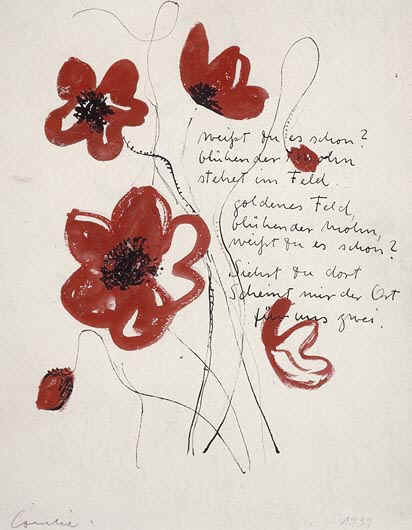 weißt du es schon?
blühender Mohn
stehet im Feld.
goldenes Feld,
blühender Mohn,
weißt du es schon?
Siehst du dort
Scheint mir der Ort
für uns zwei.